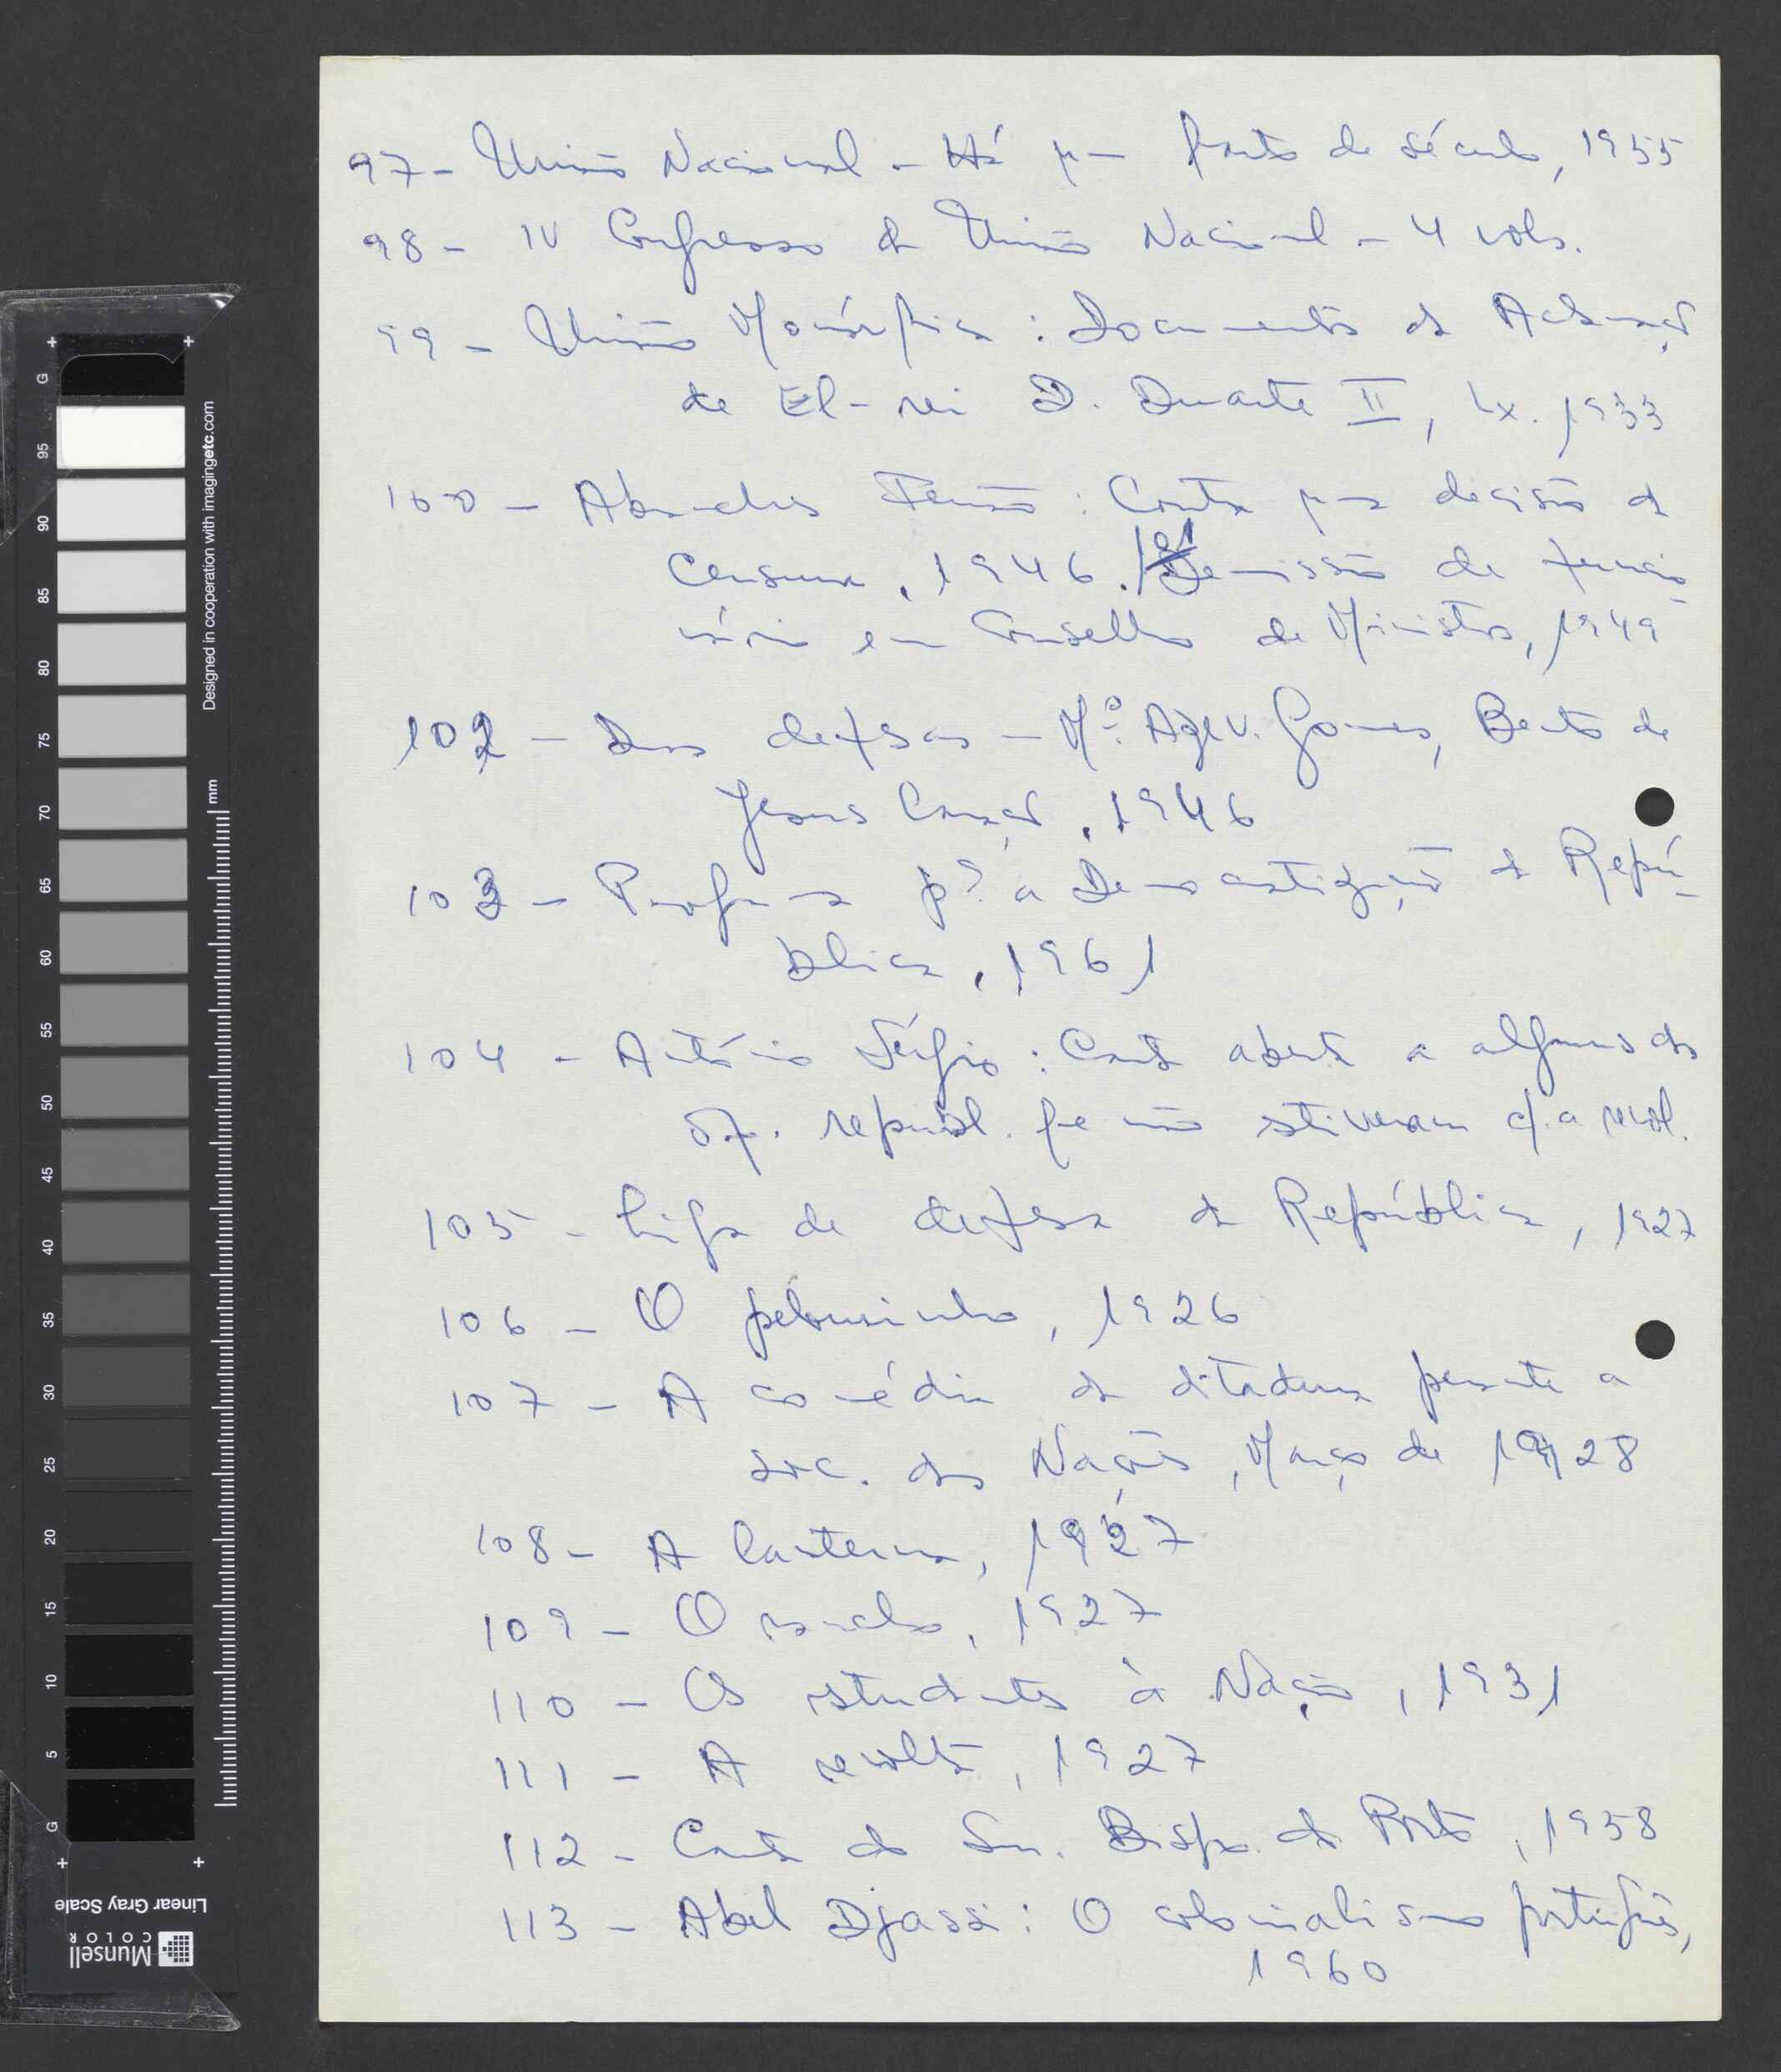 97 - União Nacional - Há um quarto de século, 1955
98 - IV Congresso da União Nacional - 4 vols.
99 - União Monárquica : Documentos da Aclamação
de El-rei D. Duarte II, Lx. 1933
100 - Abranches Ferrão : Contra uma decisão da
Censura, 1946. / Demissão de funcio-
nário em Conselho de Ministros, 1949
102 - Duas defesas - Mº. Azev. Gomes, Bento de
Jesus Caraça, 1946
103 - Programa pª. a Democratização da Repú-
blica, 1961
104 - António Sérgio : Carta aberta a alguns dos
of. republ. que não estiveram c/. a revol.
105 - Liga de defesa da República, 1927
106 - O pelourinho, 1926
107 - A comédia da ditadura perante a
soc. das Nações, Março de 1928
108 - A lanterna, 1927
109 - O 1927
110 - Os estudantes à Nação, 1931
111 - A revolta, 1927
112 - Carta do Sr. Bispo do Porto, 1958
113 - Abel Djassi : O colonialismo português,
1960
Designed in cooperation with imagingetc.com
mm
G
95
90
85
80
75
70
65
60
55
50
45
40
35
30
25
20
15
10
5
G
Linear Gray Scale
Munsell
COLOR